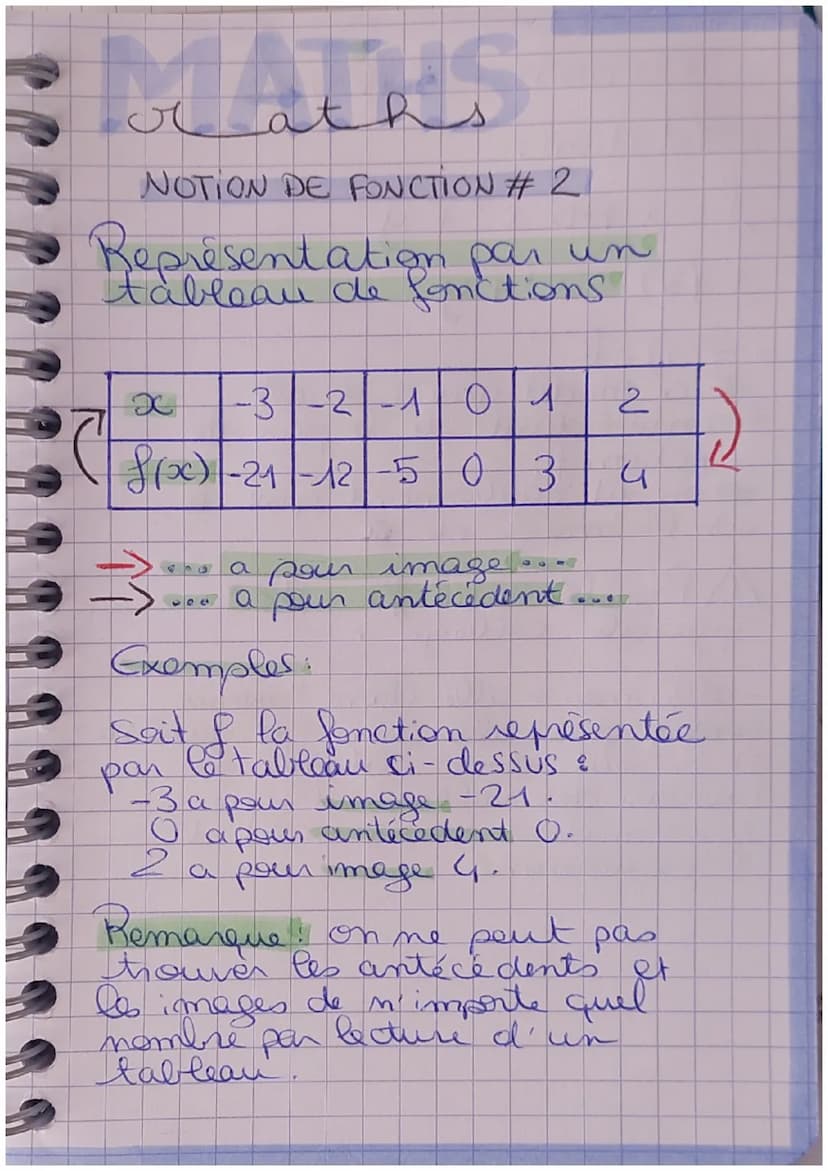 MATHS
Maths
NOTION DE FONCTION # 2
Représentation par un
tableau de fonctions
x -3 -2 -1 0 1 2
f(x) -21 -12 -5 0 3 4
→ ... a pour image ...
→ ... a pour antécédent ...
Exemples :
Soit f la fonction représentée
par le tableau ci-dessus :
-3 a pour image -21.
0 a pour antécédent 0.
2 a pour image 4.
Remarque : on ne peut pas
trouver les antécédents et
les images de n'importe quel
nombre par lecture d'un
tableau.